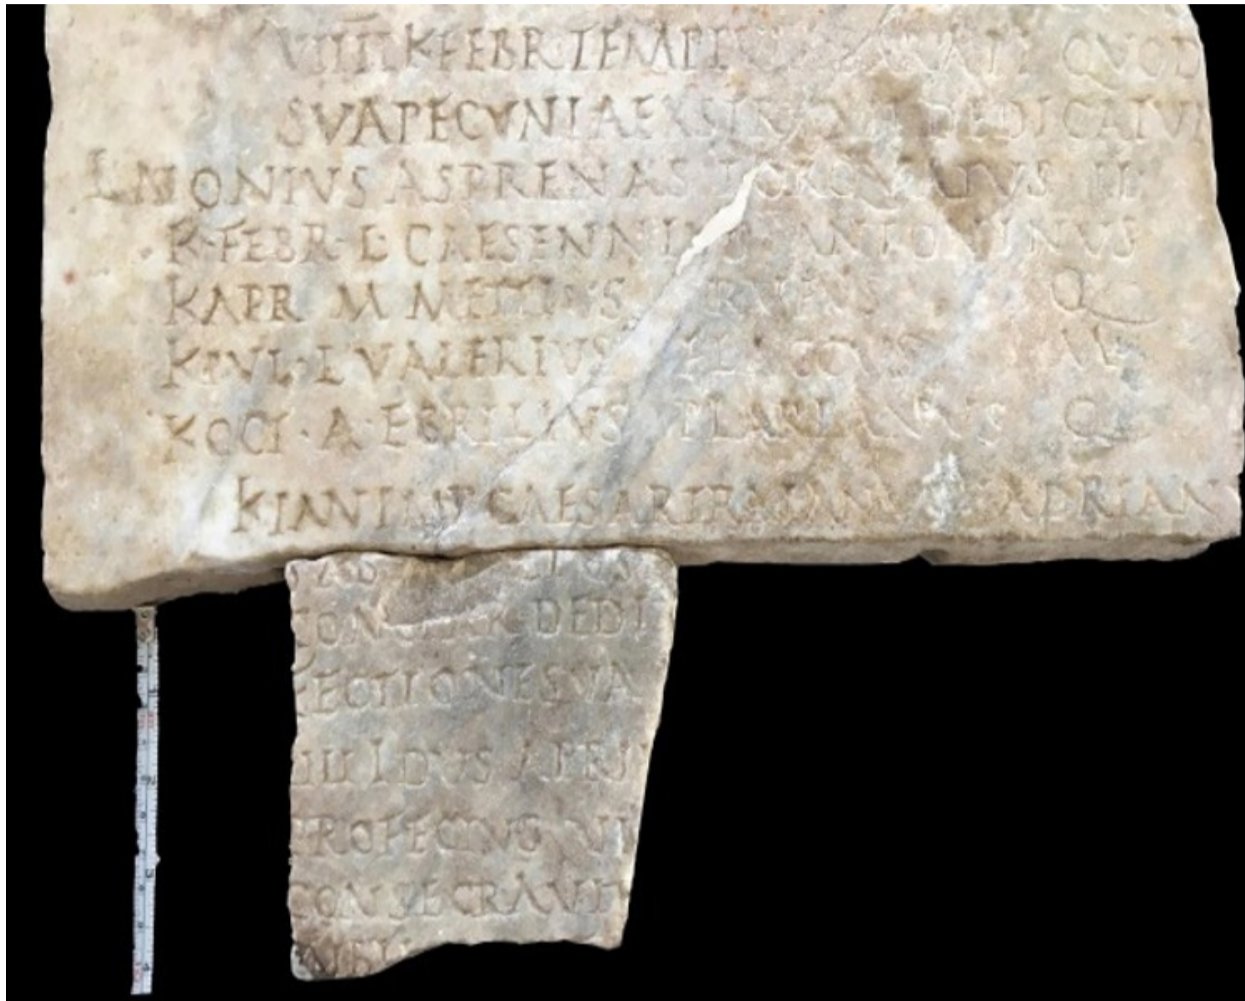 VIIII K FEBR TEMPL QVOD
SVA PECVNIA EXSTRVXIT DEDICATVM
L NONIVS ASPRENAS TORQVATVS II
K FEBR L CAESENNIVS ANTONINVS
K APR M METTIVS RVFVS Q
K IVL L VALERIVS FLACCVS M
K OCT A EGRILIVS PLARIANVS Q
K IAN IMP CAESAR TRAIANVS HADRIAN
CON DEDI
ECTIONE SVA
IIII IDVS APRI
PROFECTVS
CONSECRAVIT